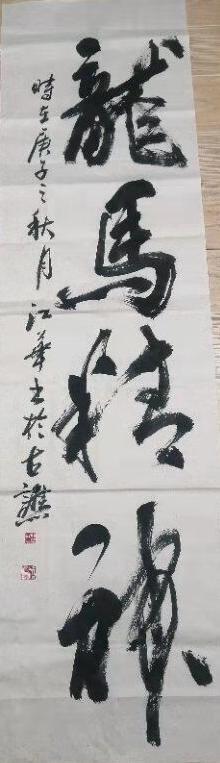 龍馬精神
時在庚子之秋月江華書於古譙